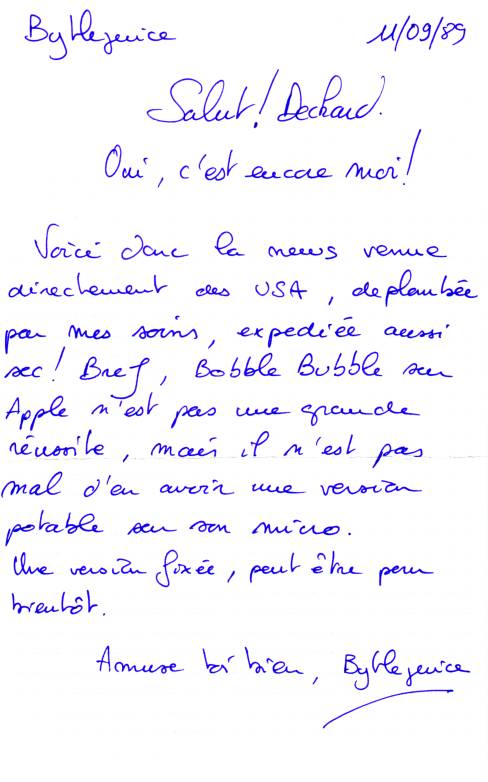 Bytlejuice 11/09/89
Salut! Deckard.
Oui, c'est encore moi!
Voici donc la news venue
directement des USA, deplombée
par mes soins, expediée aussi
sec! Bref, Bobble Bubble sur
Apple n'est pas une grande
réussite, mais il n'est pas
mal d'en avoir une version
potable sur son micro.
Une version fixée, peut être pour
bientôt.
Amuse toi bien, Bytlejuice